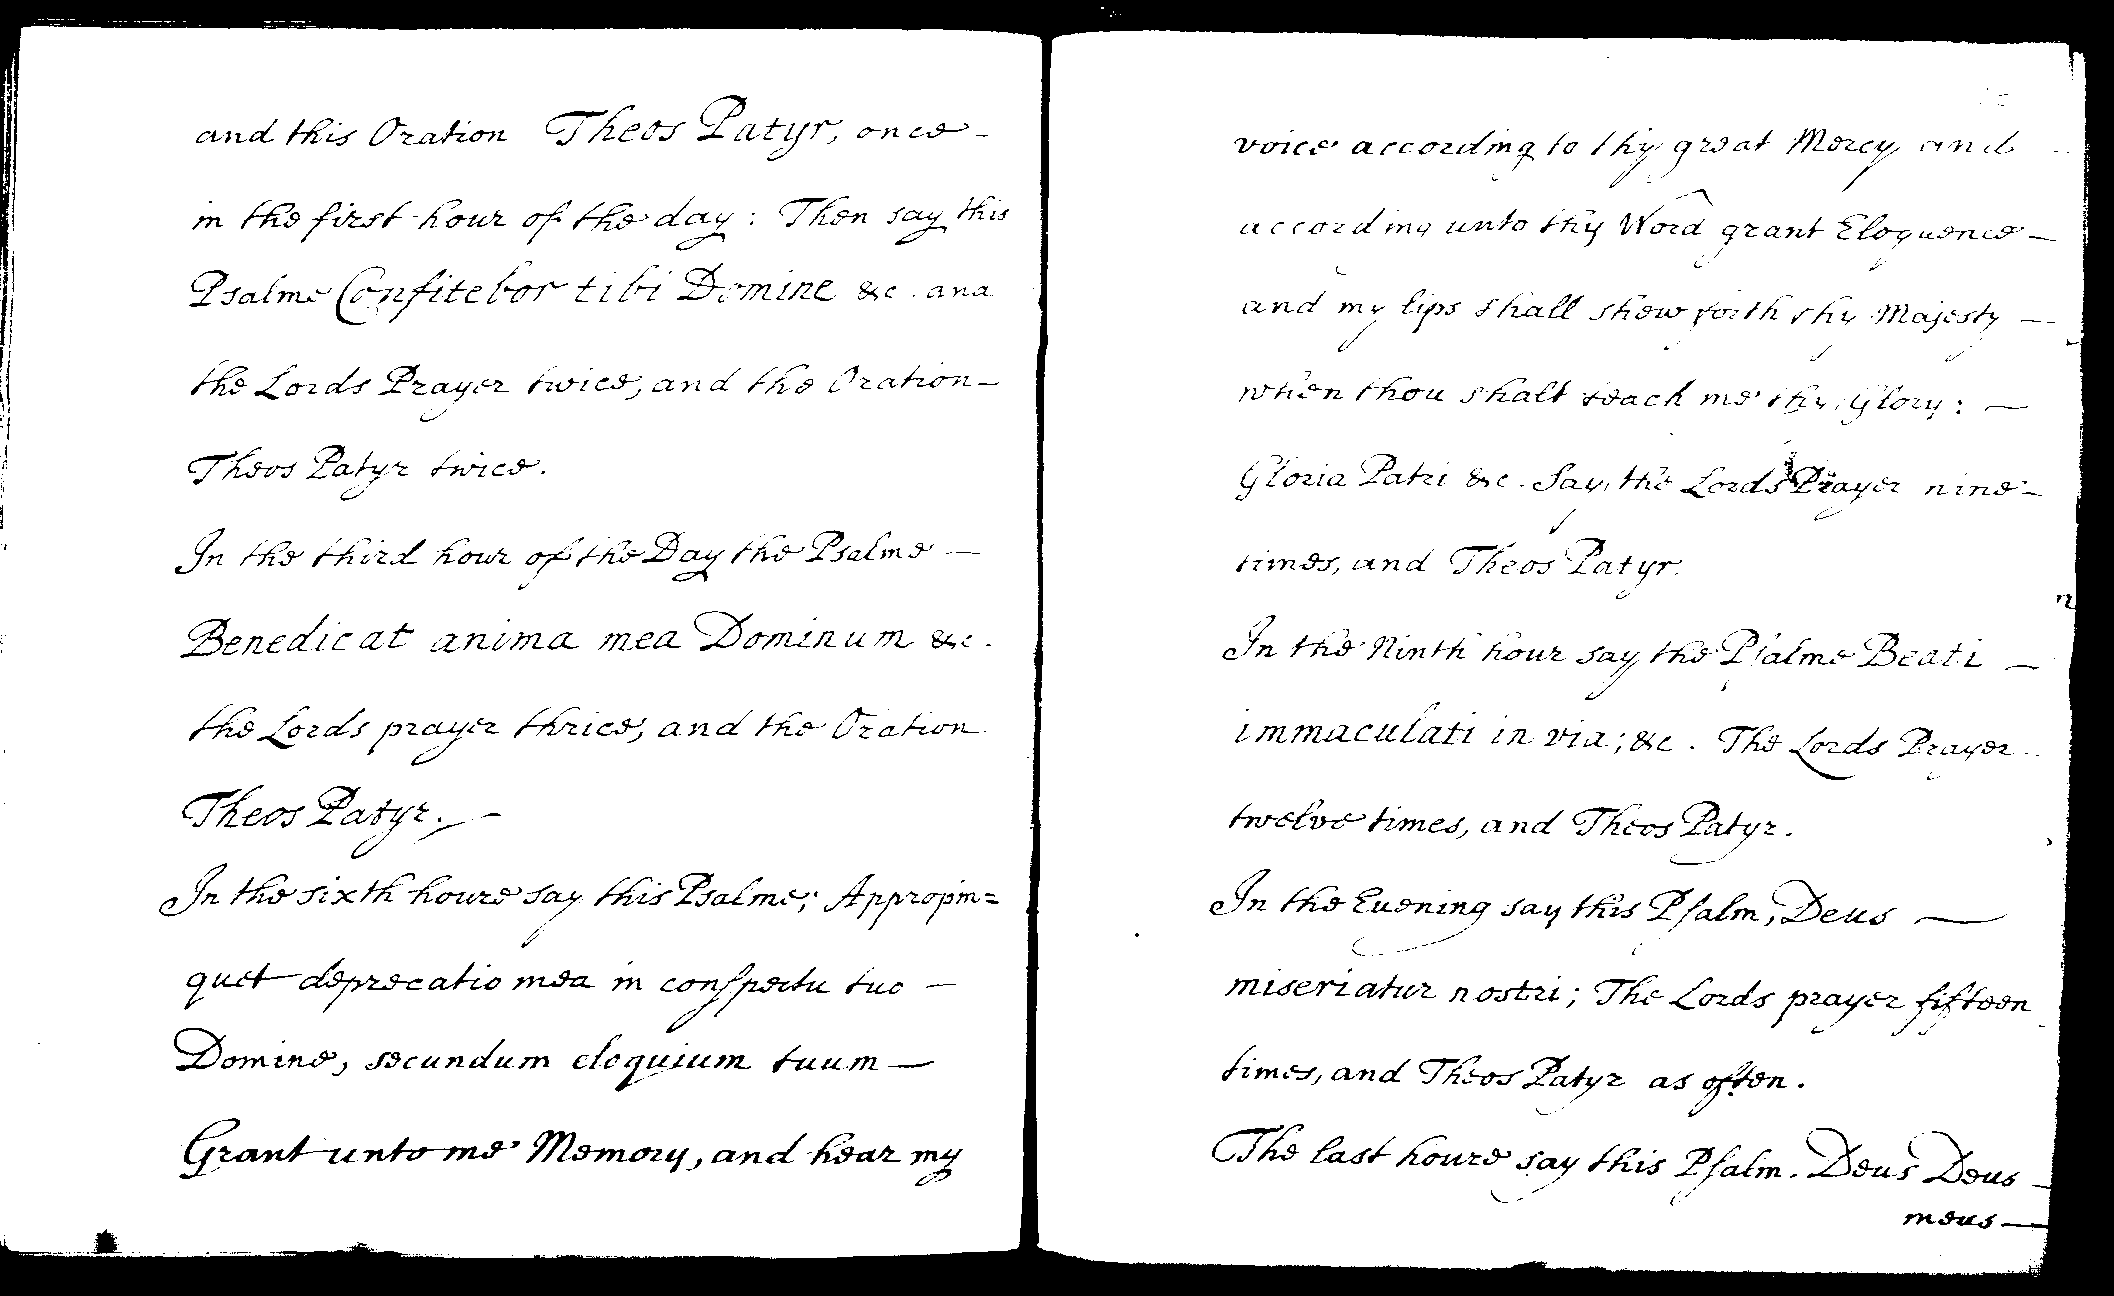 and this Oration Theos Patyr, once -
in the first hour of the day: Then say this
Psalme Confitebor tibi Domine &c. and
the Lords Prayer twice, and the Oration -
Theos Patyr twice.
In the third hour of the Day the Psalme —
Benedicat anima mea Dominum &c.
the Lords prayer thrice, and the Oration
Theos Patyr. —
In the sixth houre say this Psalme; Appropin=
quet deprecatio mea in conſpectu tuo —
Domine, secundum eloquium tuum —
Grant unto me Memory, and hear my
voice according to thy great Mercy and
according unto thy Word grant Eloquence —
and my lips shall shew forth thy Majesty —
when thou shalt teach me thy Glory: —
Gloria Patri &c. Say the Lords Prayer nine -
times, and Theos Patyr.
In the Ninth hour say the Pſalme Beati —
immaculati in via; &c. The Lords Prayer
twelve times, and Theos Patyr.
In the Euening say this Pſalm, Deus —
miseriatur nostri; The Lords prayer fifteen
times, and Theos Patyr as often.
The last houre say this Pſalm. Deus Deus —
meus —